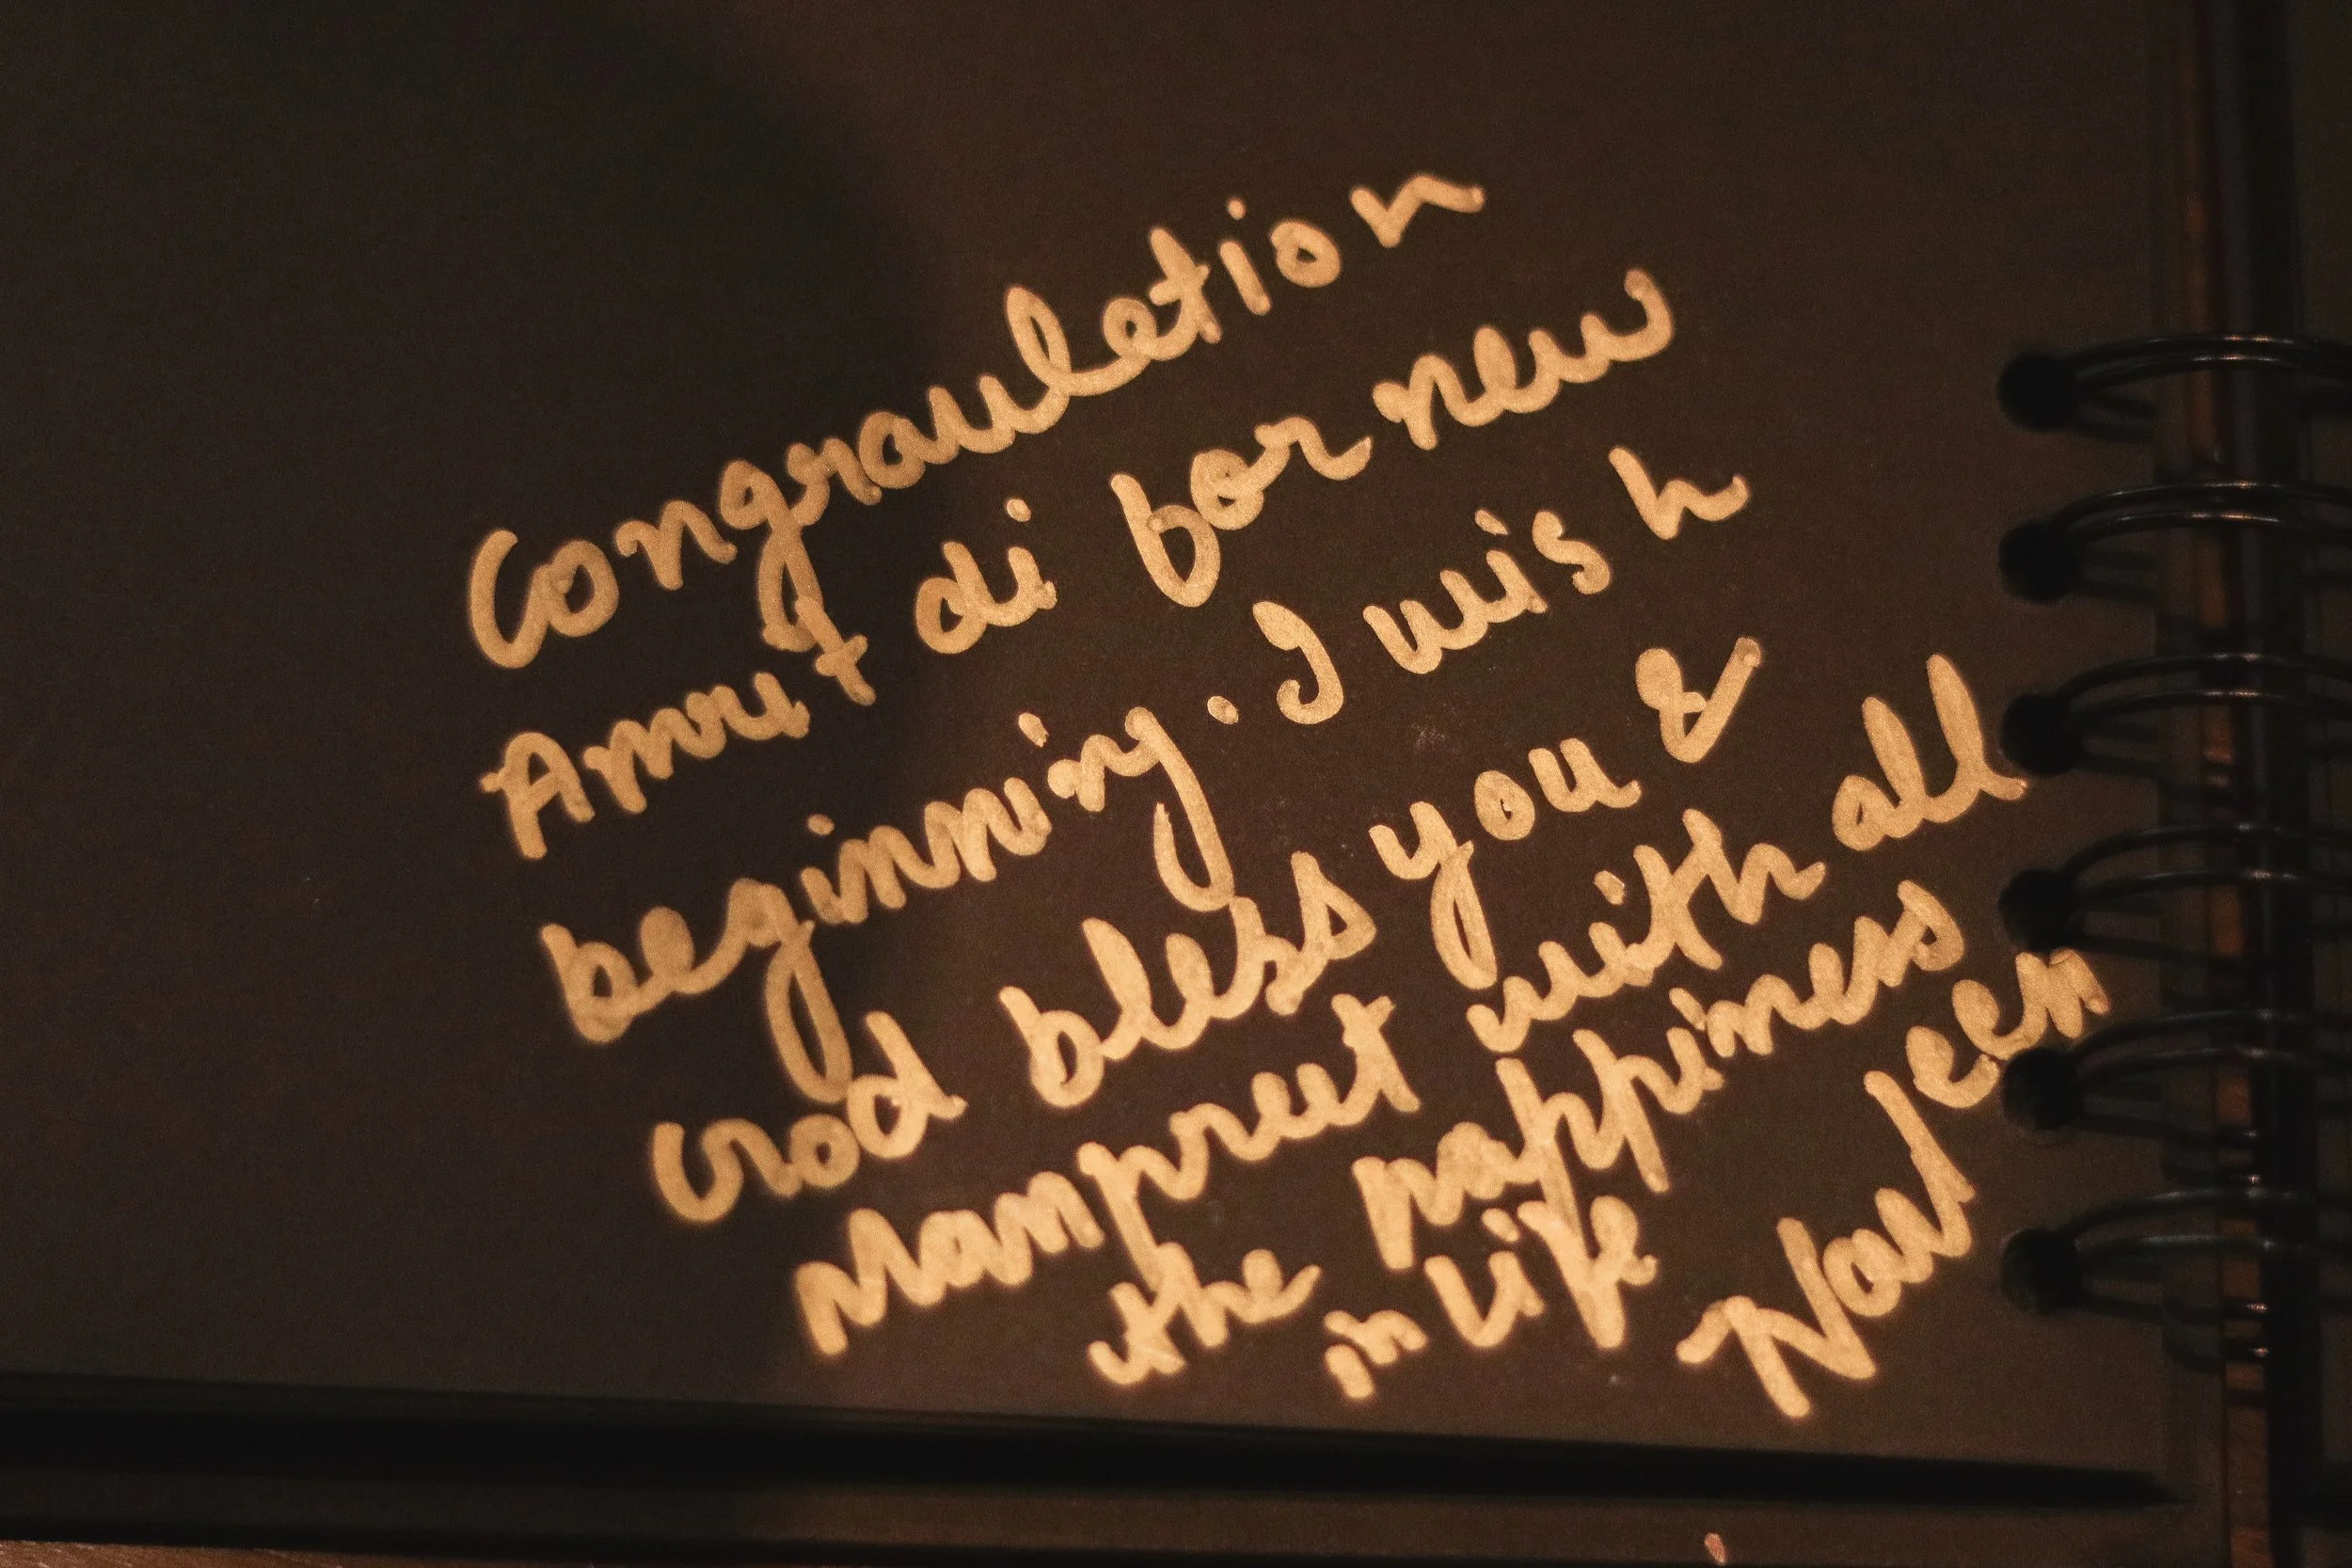 Congrauletion
Amrit di for new
beginning. I wish
God bless you &
Manpreet with all
the happiness
in life